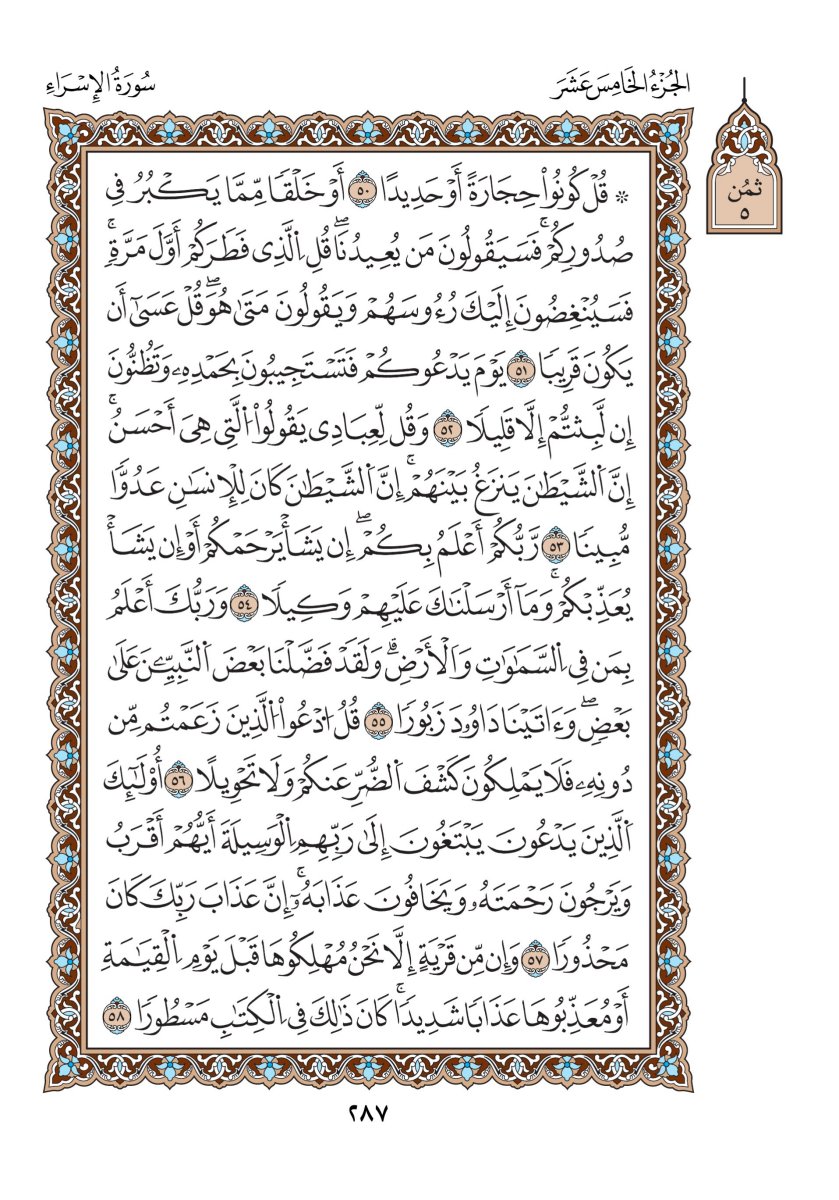 الجُزْءُ الخَامِسَ عَشَرَ
سُورَةُ الإِسْرَاءِ
ثُمُن
٥
۞ قُلۡ كُونُواْ حِجَارَةً أَوۡ حَدِيدًا ٥٠ أَوۡ خَلۡقٗا مِّمَّا يَكۡبُرُ فِي
صُدُورِكُمۡۚ فَسَيَقُولُونَ مَن يُعِيدُنَاۖ قُلِ ٱلَّذِي فَطَرَكُمۡ أَوَّلَ مَرَّةٖۚ
فَسَيُنۡغِضُونَ إِلَيۡكَ رُءُوسَهُمۡ وَيَقُولُونَ مَتَىٰ هُوَۖ قُلۡ عَسَىٰٓ أَن
يَكُونَ قَرِيبٗا ٥١ يَوۡمَ يَدۡعُوكُمۡ فَتَسۡتَجِيبُونَ بِحَمۡدِهِۦ وَتَظُنُّونَ
إِن لَّبِثۡتُمۡ إِلَّا قَلِيلٗا ٥٢ وَقُل لِّعِبَادِي يَقُولُواْ ٱلَّتِي هِيَ أَحۡسَنُۚ
إِنَّ ٱلشَّيۡطَٰنَ يَنزَغُ بَيۡنَهُمۡۚ إِنَّ ٱلشَّيۡطَٰنَ كَانَ لِلۡإِنسَٰنِ عَدُوّٗا
مُّبِينٗا ٥٣ رَّبُّكُمۡ أَعۡلَمُ بِكُمۡۖ إِن يَشَأۡ يَرۡحَمۡكُمۡ أَوۡ إِن يَشَأۡ
يُعَذِّبۡكُمۡۚ وَمَآ أَرۡسَلۡنَٰكَ عَلَيۡهِمۡ وَكِيلٗا ٥٤ وَرَبُّكَ أَعۡلَمُ
بِمَن فِي ٱلسَّمَٰوَٰتِ وَٱلۡأَرۡضِۗ وَلَقَدۡ فَضَّلۡنَا بَعۡضَ ٱلنَّبِيِّـۧنَ عَلَىٰ
بَعۡضٖۖ وَءَاتَيۡنَا دَاوُۥدَ زَبُورٗا ٥٥ قُلُ ٱدۡعُواْ ٱلَّذِينَ زَعَمۡتُم مِّن
دُونِهِۦ فَلَا يَمۡلِكُونَ كَشۡفَ ٱلضُّرِّ عَنكُمۡ وَلَا تَحۡوِيلًا ٥٦ أُوْلَٰٓئِكَ
ٱلَّذِينَ يَدۡعُونَ يَبۡتَغُونَ إِلَىٰ رَبِّهِمِ ٱلۡوَسِيلَةَ أَيُّهُمۡ أَقۡرَبُ
وَيَرۡجُونَ رَحۡمَتَهُۥ وَيَخَافُونَ عَذَابَهُۥٓۚ إِنَّ عَذَابَ رَبِّكَ كَانَ
مَحۡذُورٗا ٥٧ وَإِن مِّن قَرۡيَةٍ إِلَّا نَحۡنُ مُهۡلِكُوهَا قَبۡلَ يَوۡمِ ٱلۡقِيَٰمَةِ
أَوۡ مُعَذِّبُوهَا عَذَابٗا شَدِيدٗاۚ كَانَ ذَٰلِكَ فِي ٱلۡكِتَٰبِ مَسۡطُورٗا ٥٨
٢٨٧